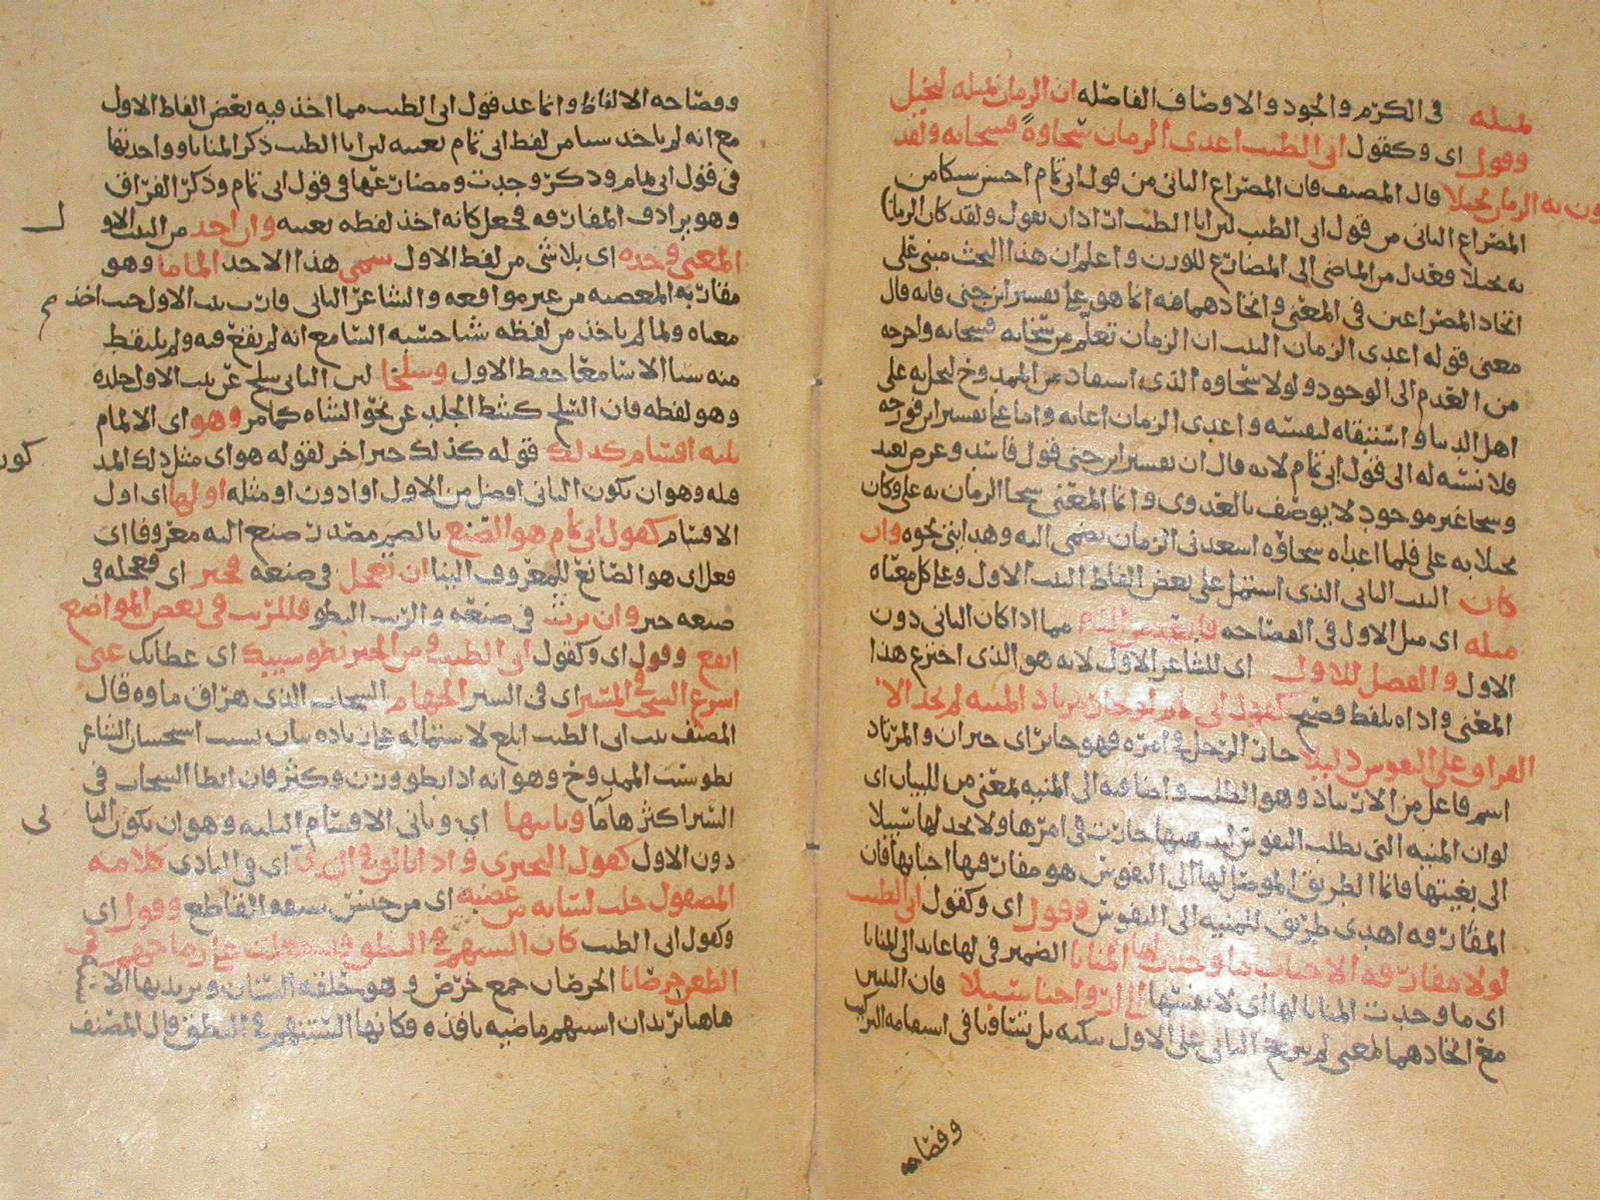 لمثله في الكرم والجود والاوصاف الفاضلة ان الزمان بمثله لبخيل
وقول اى وكقول ابى الطيب اعدى الزمان سخاوة فسخابه ولقد
يكون به الزمان بخيلا قال المصنف فان المصراع الثانى من قول ابى تمام احسن سبكا من
المصراع الثانى من قول ابى الطيب لان ابا الطيب اراد ان يقول ولقد كان الزمان
به بخيلا فعدل من الماضى الى المضارع للوزن واعلم ان هذا البحث مبنى على
اتحاد المصراعين فى المعنى واتحادهما فيه انما هو على تفسير ابن جنى فانه قال
معنى قوله اعدى الزمان البيت ان الزمان تعلم من سخايه فسخابه واخرجه
من العدم الى الوجود ولولا سخاوه الذى استفاد من الممدوح لبخل به على
اهل الدنيا واستبقاه لنفسه واعدى الزمان اعانه واما على تفسير ابن فورجه
فلا نسبة له الى قول ابى تمام لانه قال ان تفسير ابن جنى قول فاسد وغرض بعيد
وسخا غير موجود لا يوصف بالعدوى وانما المعنى سخا الزمان به على وكان
بخيلا به على فلما اعداه سخاوه اسعدنى الزمان بضمى اليه وهدايتى نحوه وان
كان البيت الثانى الذى اشتمل على بعض الفاظ البيت الاول وعلى كل معناه
مثله اى مثل الاول فى الفصاحة فابعد من الذم مما اذا كان الثانى دون
الاول والفضل للاول اى للشاعر الاول لانه هو الذى اخترع هذا
المعنى واداه بلفظ فصيح كقول ابى تمام لو حار مرتاد المنية لم يجد الا
الفراق على النفوس دليلا حار الرجل فى امره فهو حاير اى حيران والمرتاد
اسم فاعل من الارتياد وهو الطلب واضافته الى المنية بمعنى من للبيان اى
لو ان المنية التى تطلب النفوس حارت فى امرها ولا يجد لها سبيلا
الى بغيتها فانما الطريق الموصل لها الى النفوس هو مفارقة احبابها فان
المفارقة اهدى طريق للمنية الى النفوس وقول اى وكقول ابى الطيب
لولا مفارقة الاحباب ما وجدت لها المنايا الضمير فى لها عايد الى المنايا
اى ما وجدت المنايا لها اى لانفسها الى ارواحنا سبيلا فان البيتين
مع اتحادهما المعنى لم يترجح الثانى على الاول بنكتة بل تساويا فى استقامة التركيب
وفصاحه
وفصاحه الالفاظ وانما عد قول ابى الطيب مما اخذ فيه بعض الفاظ الاول
مع انه لم ياخذ شيا من لفظ ابى تمام بعينه لان ابا الطيب ذكر المنايا وواحدتها
فى قول ابى تمام وذكر وجدت ومضارعها فى قول ابى تمام وذكر الفراق
وهو يرادف المفارقة فجعل كانه اخذ لفظه بعينه وان اخذ من البيت الاو
ل
المعنى وحده اى بلا شى من لفظ الاول سمى هذا الاخذ الماما وهو
مقاربة المعصية من غير مواقعه والشاعر الثانى قارب بيت الاول حيث اخذ
معناه ولما لم ياخذ من لفظه شيا حسبه السامع انه لم يقع فيه ولم يلتقط
منه شيا الا سامعا حفظ الاول وسلخا لان الثانى سلخ عن بيت الاول جلده
وهو لفظه فان السلخ كشط الجلد عن نحو الشاه كما مر وهو اى الالمام
ثلثه اقسام كذلك قوله كذلك خبر اخر لقوله هو اى مثل ذلك المذ
كور
قبله وهو ان يكون الثانى افضل من الاول او ادون او مثله اولها اى اول
الاقسام كقول ابى تمام هو الصنع بالضم مصدر صنع اليه معروفا اى
فعل اى هو الصانع للمعروف الينا ان تعجل فى صنعه فخير اى فعجله فى
صنعه خير وان يرث فى صنعه والريث البطو فللريث فى بعض المواضع
انفع وقول اى وكقول ابى الطيب ومن الخير بطو سيبك اى عطائك عنى
اسرع السحب فى المسير اى فى السير الجهام السحاب الذى هراق ماوه قال
المصنف بيت ابى الطيب ابلغ لاشتماله على زيادة بيان بسبب استحسان الشاعر
بطو سيب الممدوح وهو انه اذا بطو وزن وكثر فان ابطا السحاب فى
السير اكثرها ما وثانيها اى وثانى الاقسام الثلثة وهو ان يكون الثا
نى
دون الاول كقول البحترى واذا تالق فى الندى اى فى النادى كلامه
المصقول خلت لسانه من عضبه اى من جنس سيفه القاطع وقول اى
وكقول ابى الطيب كان السنهم فى النطق قد جعلت على رماحهم فى
الطعن خرصانا الخرصان جمع خرص وهو حلقة السنان ويريد بها الاسنه
هاهنا يريد ان اسنتهم ماضيه نافذه فكانها السنتهم فى النطق قال المصنف